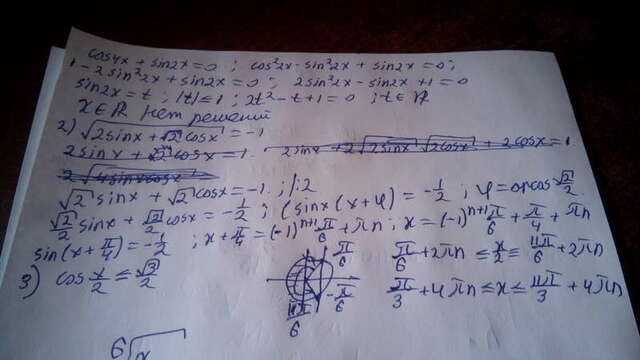 cos4x + sin2x = 0 ; cos²2x - sin²2x + sin2x = 0 ;
1 - 2sin²2x + sin2x = 0 ; 2sin²2x - sin2x + 1 = 0
sin2x = t ; |t| ≤ 1 ; 2t² - t + 1 = 0 ; t ∈ R
x ∈ R нет решений
2) √2sinx + √2cosx = -1
2sinx + √2cosx = 1. 2sinx + 2√2sinx √2cosx + 2cosx = 1
2√4sinxcosx
√2 sinx + √2cosx = -1. |:2
√2/2 sinx + √2/2 cosx = -1/2 ; (sinx(x+φ) = -1/2 ; φ = arcos √2/2
sin(x + π/4) = -1/2 ; x + π/4 = (-1)ⁿ⁺¹ π/6 + πn ; x = (-1)ⁿ⁺¹ π/6 + π/4 + πn
3) cos x/2 ≤ √3/2 π/6 -π/6 11π/6 π/6 + 2πn ≤ x/2 ≤ 11π/6 + 2πn
π/3 + 4πn ≤ x ≤ 11π/3 + 4πn
6√x